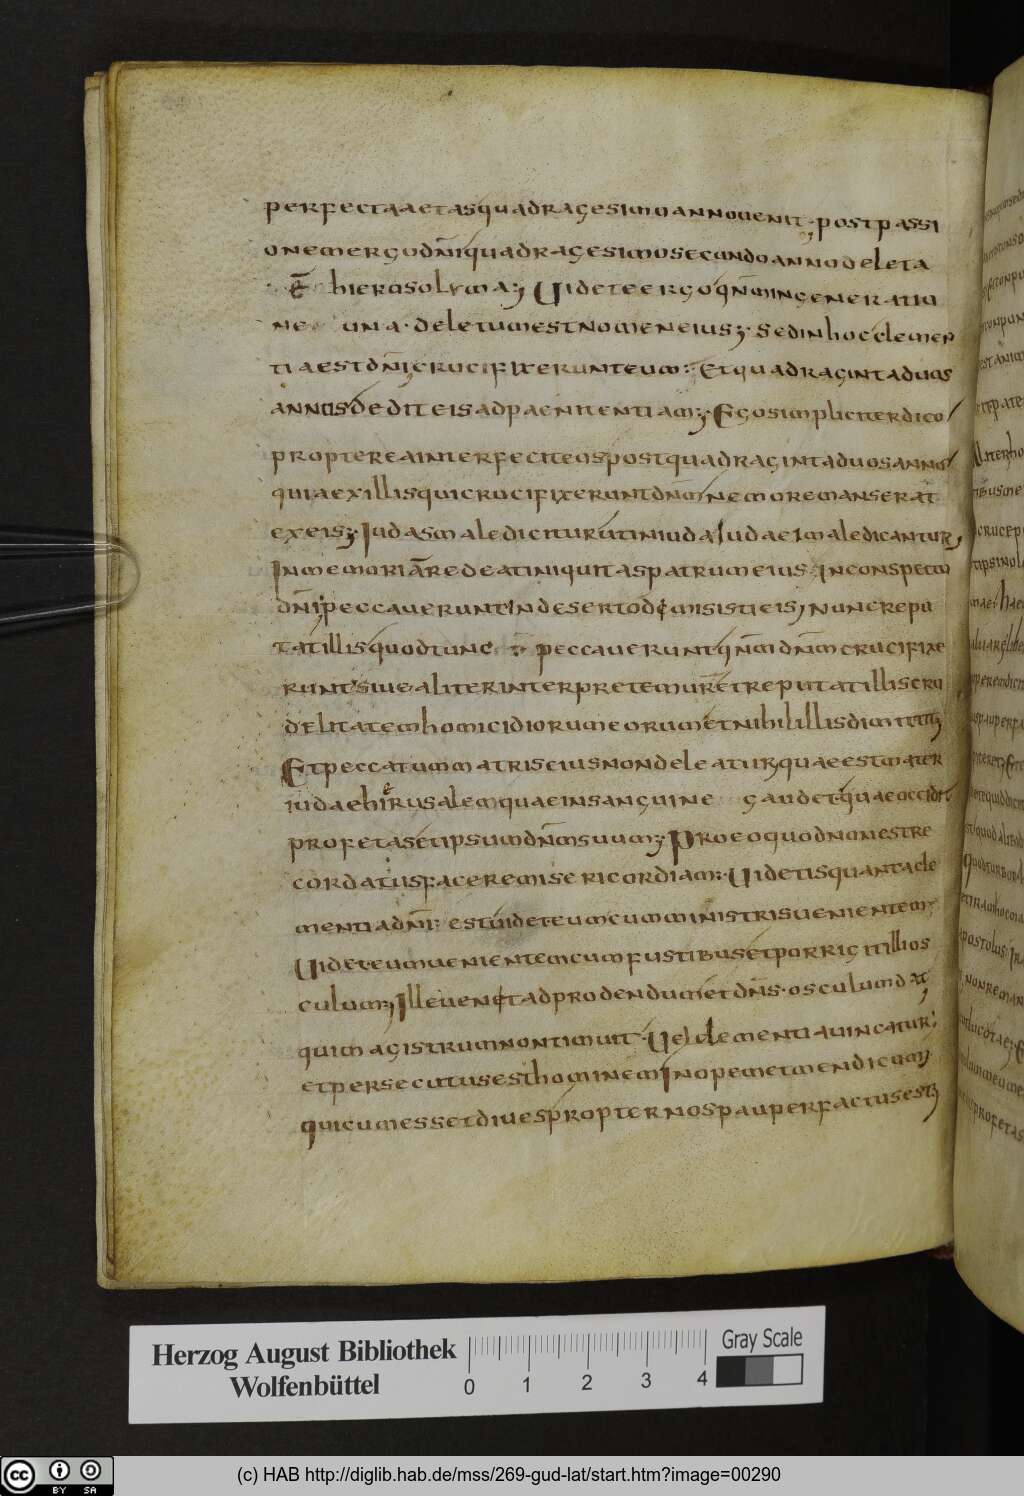 perfecta aetas quadragesimo anno uenit · post passi
onem ergo dn̄i quadragesimo secundo anno deleta
ē hierosolyma; Uidete ergo qn̄m in generatio
ne una · deletum est nomen eius; · sed in hoc clemen
tia est dn̄i; crucifixerunt eum: Et quadraginta duos
annos dedit eis ad paenitentiam; · Ego simpliciter dico
propterea interfecit eos post quadraginta duos annos
quia ex illis qui crucifixerunt dn̄m nemo remanserat
ex eis; · Iudas maledicitur ut in iuda Iudaei maledicantur;
In memoriā redeat iniquitas patrum eius · In conspectu
dn̄i; peccauerunt In deserto dē misisti eis, nunc repu
tat illis quod tunc peccauerunt qn̄m dn̄m crucifixe
runt siue aliter interpretemur et reputat illis cru
delitatem homicidiorum eorum et nihil illis dimittit;
Et peccatum matris eius non deleatur, quae est mater
iudae hierusalem quae in sanguine gaudet · quae occidit
profetas et ipsum dn̄m suum; Pro eo quod non est re
cordatus facere misericordiam: · Uidetis quanta cle
mentia dn̄i: est uidet eum cum ministris uenientem ·
Uidet eum uenientem cum fustibus et porrigit illi os
culum; Ille uenit ad prodendum et dn̄s · osculum dat,
qui magistrum non timuit · Uel clementia uincatur:
et persecutus est hominem Inopem et mendicum;
qui cum esset diues propter nos pauper factus est;
Herzog August Bibliothek
Wolfenbüttel
0 1 2 3 4
Gray Scale
cc BY SA
(c) HAB http://diglib.hab.de/mss/269-gud-lat/start.htm?image=00290